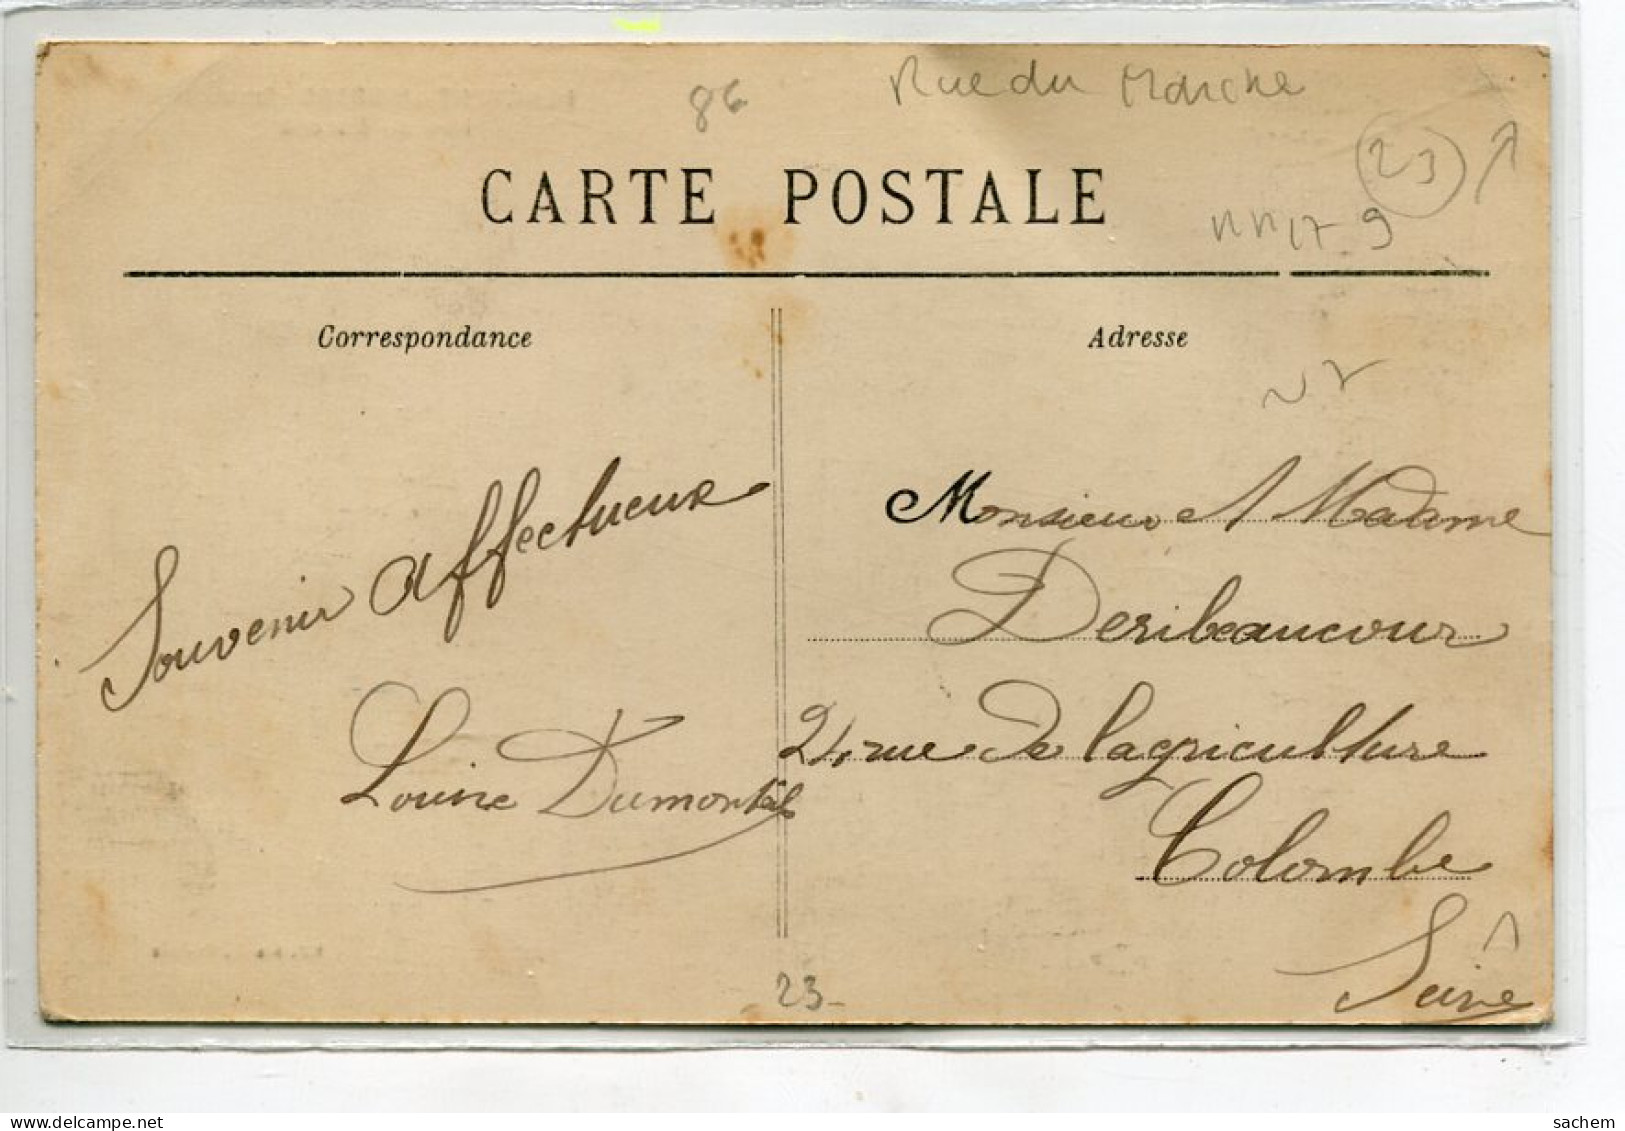 86
Rue du Marche
23
CARTE POSTALE
Correspondance
Adresse
Souvenir affectueux
Louise Dumonteil
Monsieur et Madame
Deribeaucour
24 rue de lagriculture
Colombe
Seine
23-
sachem